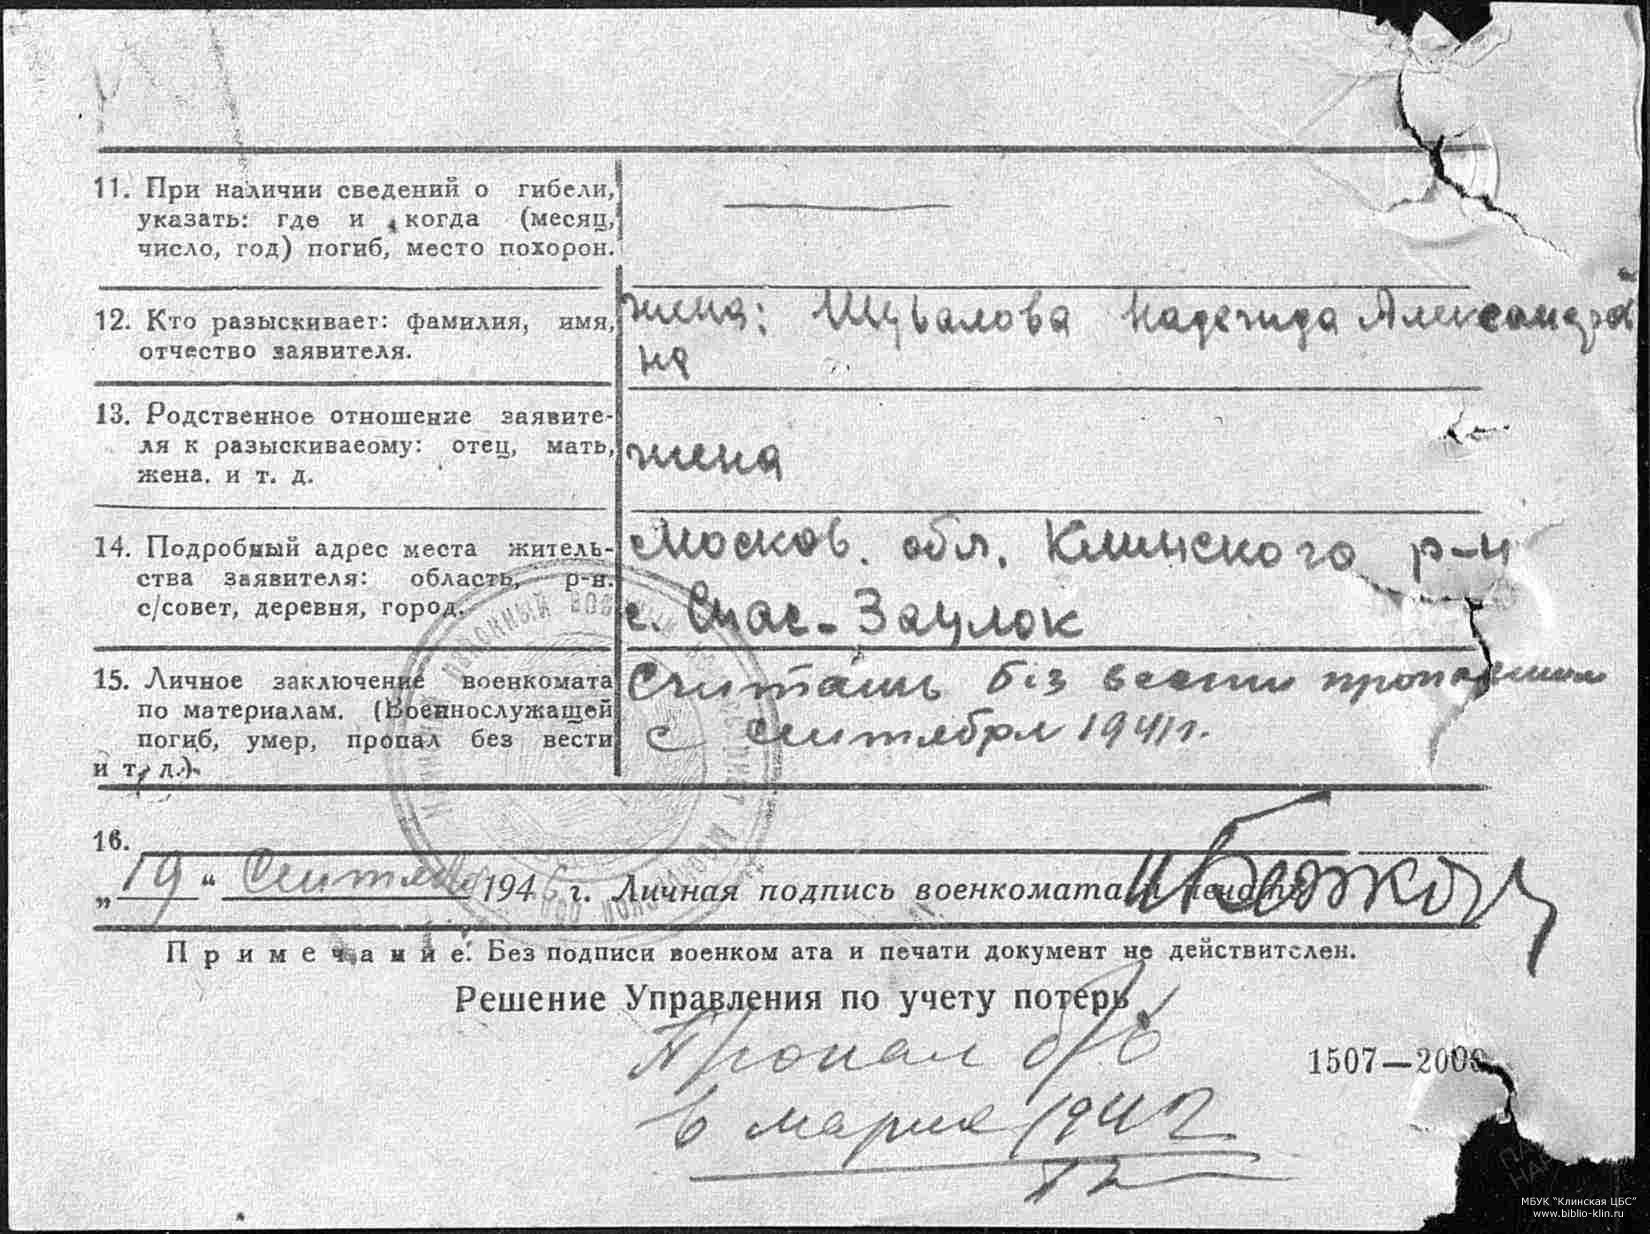 11. При наличии сведений о гибели,
указать: где и когда (месяц,
число, год) погиб, место похорон.
12. Кто разыскивает: фамилия, имя,
отчество заявителя.
жена: Шувалова Надежда Александров
на
13. Родственное отношение заявите-
ля к разыскиваеому: отец, мать,
жена. и т. д.
жена
14. Подробный адрес места житель-
ства заявителя: область, р-н.
с/совет, деревня, город.
Москов. обл. Клинского р-н
с. Спас-Заулок
15. Личное заключение военкомата
по материалам. (Военнослужащей
погиб, умер, пропал без вести
и т. д.).
Считать без вести пропавшим
с сентября 1941 г.
16.
„19“ Сентября 1946 г. Личная подпись военкомата и печать
Примечание: Без подписи военком ата и печати документ не действителен.
Решение Управления по учету потерь
Пропал б/в
в марте 1942
1507—2000
МБУК "Клинская ЦБС"
www.biblio-klin.ru